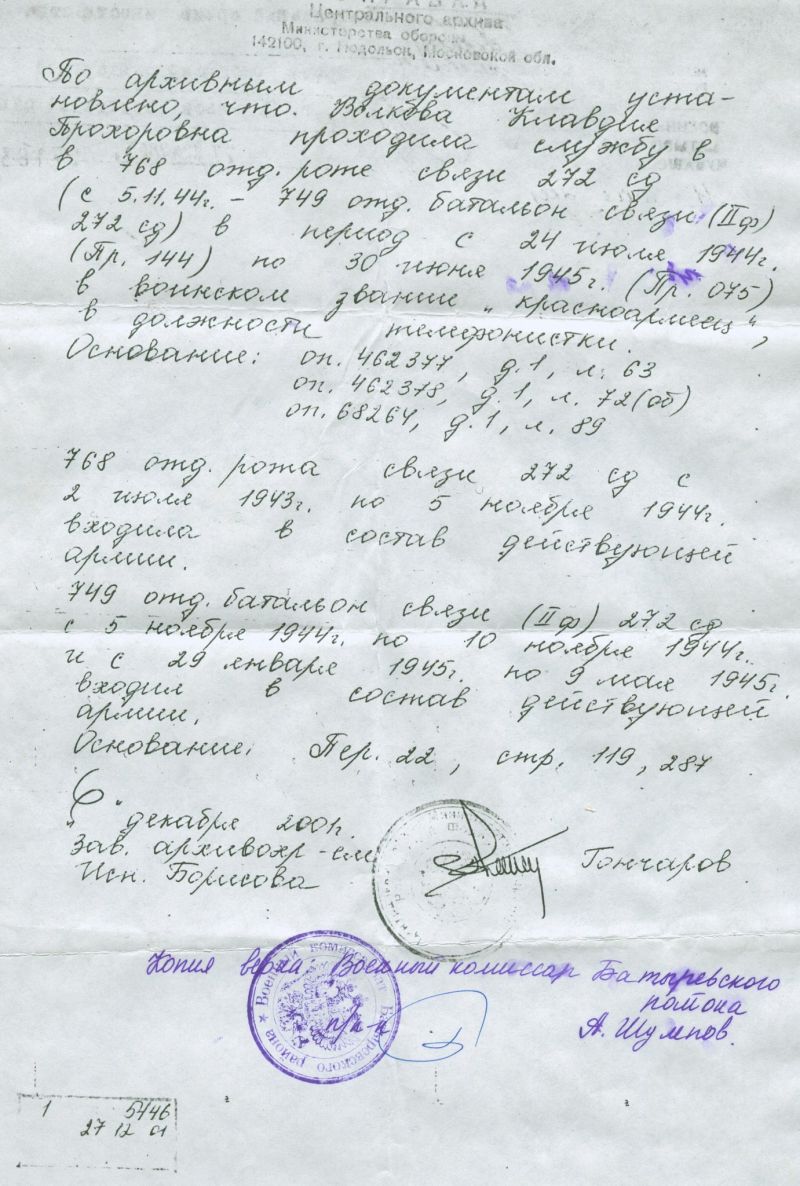 Центрального архива
Министерства обороны
142100, г. Подольск, Московской обл.
По архивным документам уста-
новлено, что. Волкова Клавдия
Прохоровна проходила службу в
в 768 отд. роте связи 272 сд
(с 5.11.44г. – 749 отд. батальон связи (IIф)
272 сд) в период с 24 июля 1944г.
(Пр. 144) по 30 июня 1945г. (Пр. 075)
в воинском звании „красноармеец“,
в должности телефонистки.
Основание: оп. 462377, д.1, л. 63
оп. 462378, д.1, л. 72(об)
оп. 68264, д.1, л. 89
768 отд. рота связи 272 сд с
2 июля 1943г. по 5 ноября 1944г.
входила в состав действующей
армии.
749 отд. батальон связи (IIф) 272 сд
с 5 ноября 1944г. по 10 ноября 1944г.
и с 29 января 1945г. по 9 мая 1945г.
входил в состав действующей
армии.
Основание: Пер. 22, стр. 119, 287
„6“ декабря 2001г.
Зав. архивохр-ем Гончаров
Исп. Борисова
Копия верна: Военный комиссар Батыревского
района
п/п-к А. Шумпов.
Военный комиссариат Батыревского района
1 5746
27 12 01